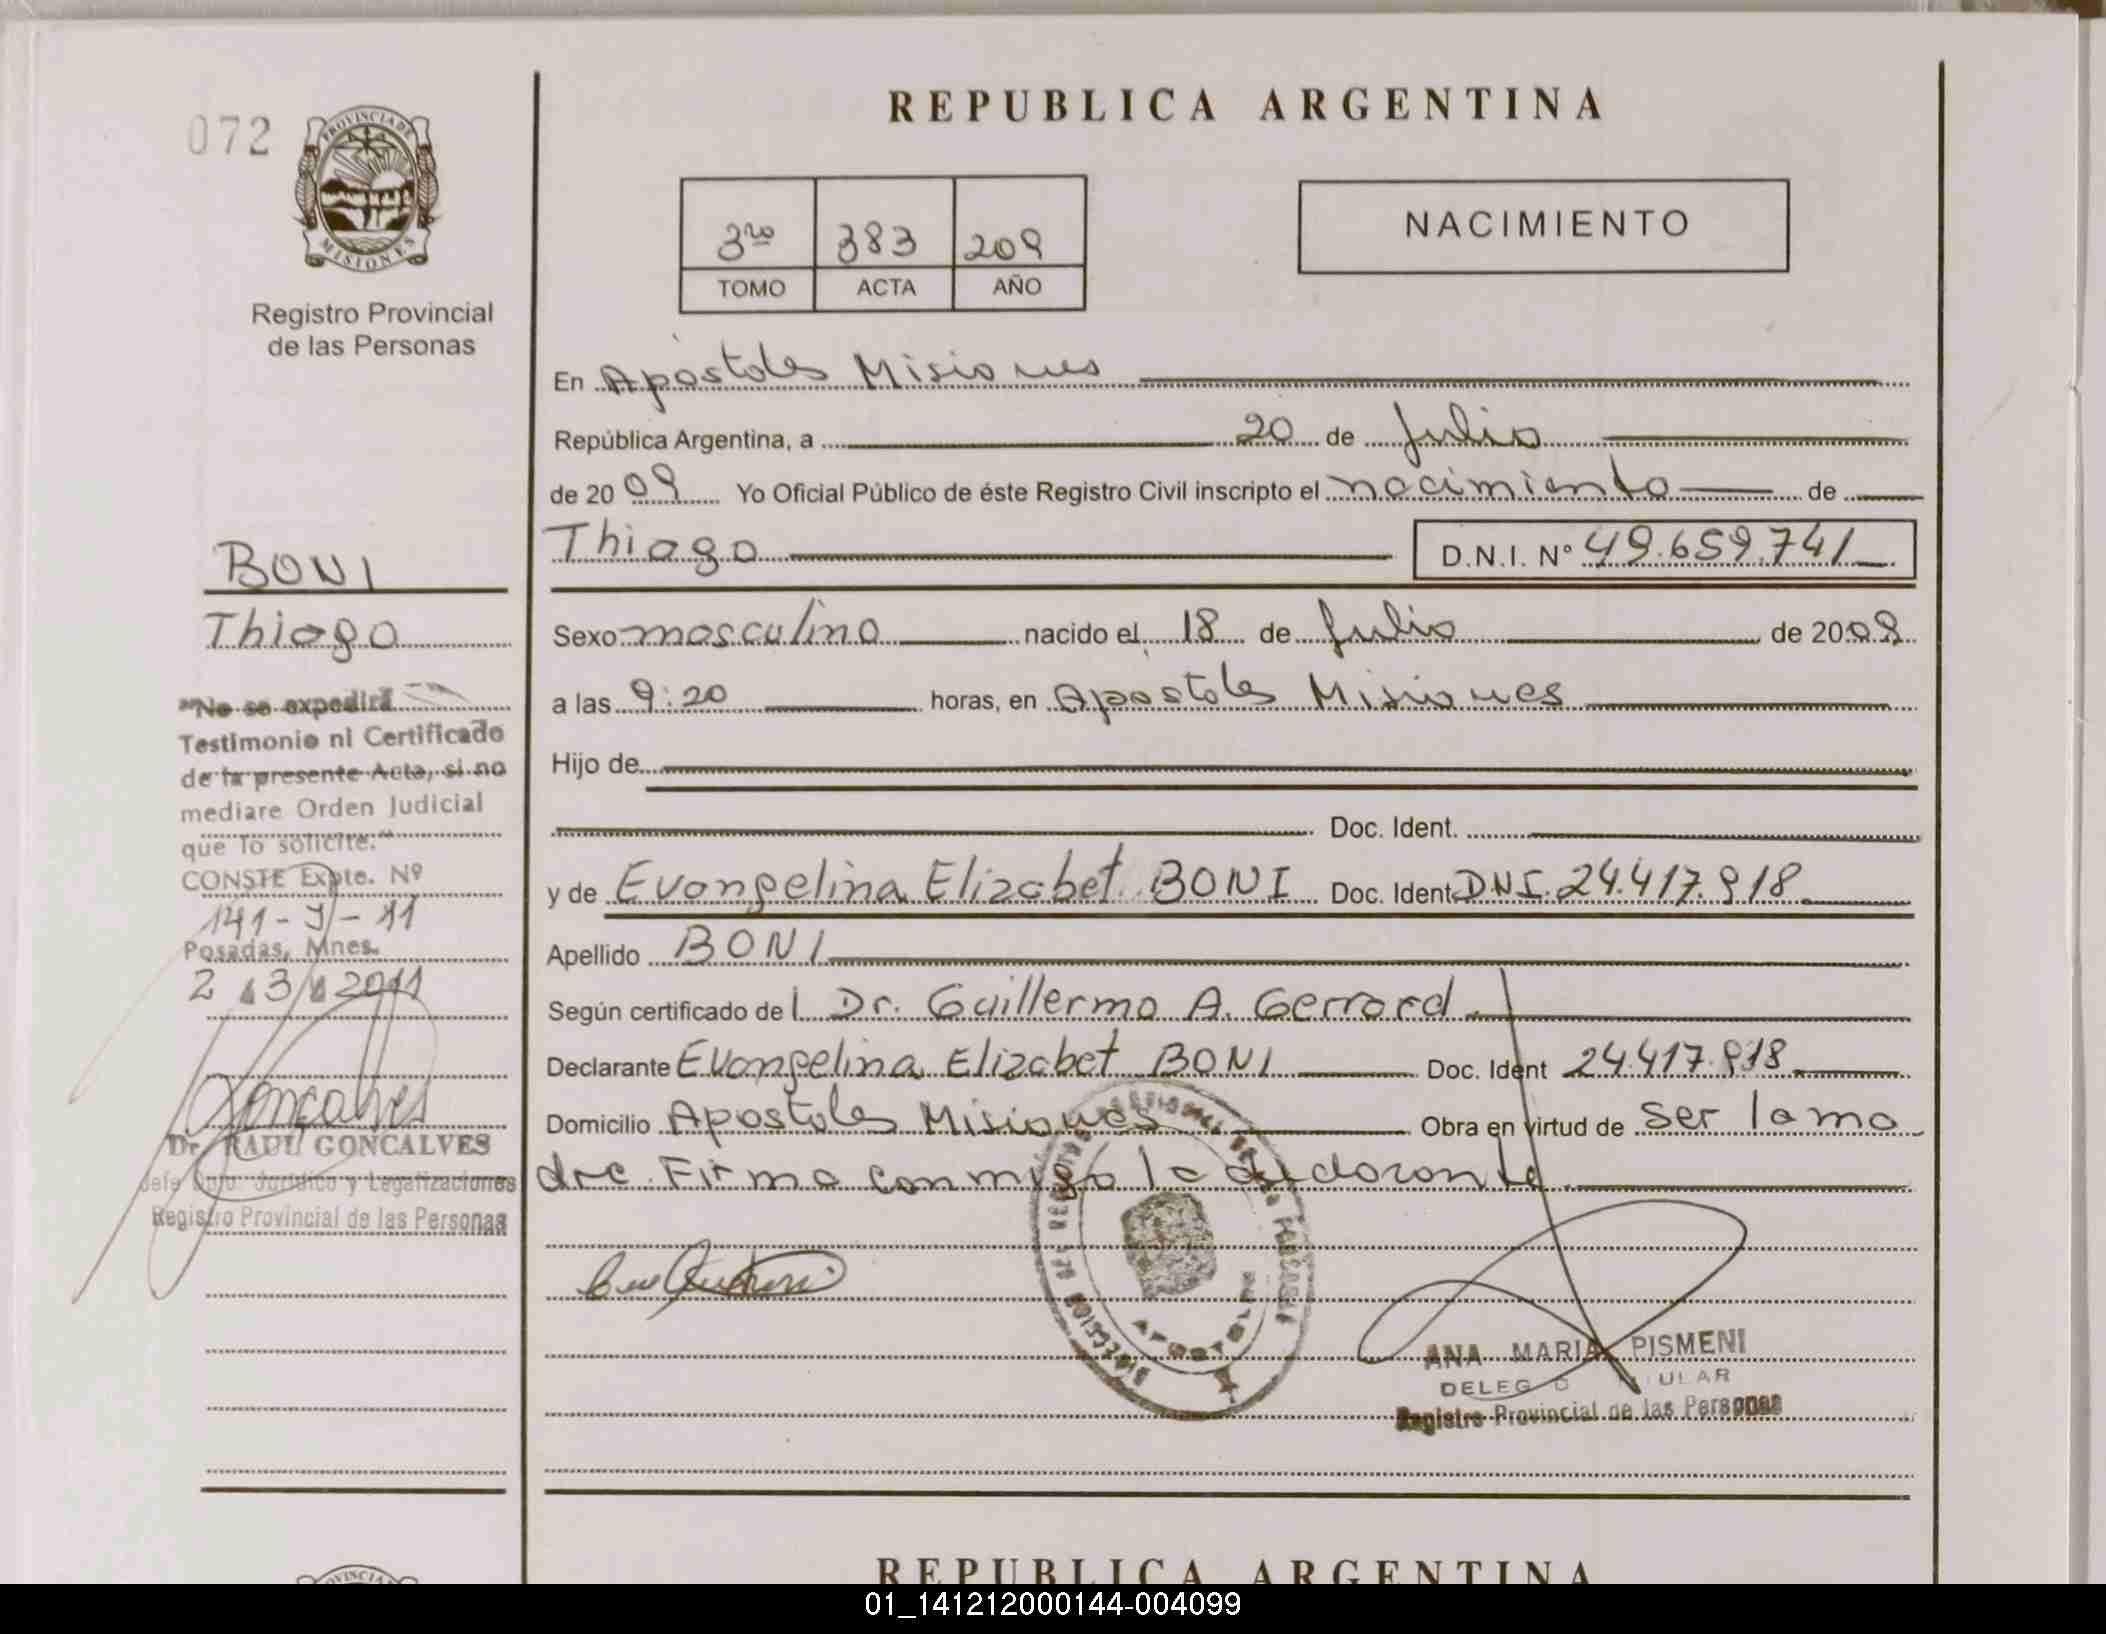 REPUBLICA ARGENTINA
072
PROVINCIA DE
MISIONES
Registro Provincial
de las Personas
3ro 383 209
TOMO ACTA AÑO
NACIMIENTO
En Apóstoles Misiones
República Argentina, a 20 de Julio
de 20 09 Yo Oficial Público de éste Registro Civil inscripto el nacimiento de
Thiago D.N.I. Nº 49.659.741
Sexo masculino nacido el 18 de Julio de 2009
a las 9:20 horas, en Apóstoles Misiones
Hijo de
Doc. Ident.
y de Evangelina Elizabet BONI Doc. Ident DNI. 24.417.918
Apellido BONI
Según certificado de l Dr. Guillermo A. Gerrard
Declarante Evangelina Elizabet BONI Doc. Ident 24.417.918
Domicilio Apostoles Misiones Obra en virtud de ser la ma
dre. Firma conmigo la declarante
APOSTOLES
ANA MARIA PISMENI
Registro Provincial de las Personas
BONI
Thiago
"No se expedirá
Testimonio ni Certificado
de la presente Acta, si no
mediare Orden Judicial
que lo solicite."
CONSTE Expte. Nº
141-J-11
Posadas, Mnes.
2 3 2011
Goncalves
Dr. RAUL GONCALVES
Jefe Dpto. Jurídico y Legalizaciones
Registro Provincial de las Personas
REPUBLICA ARGENTINA
01_141212000144-004099